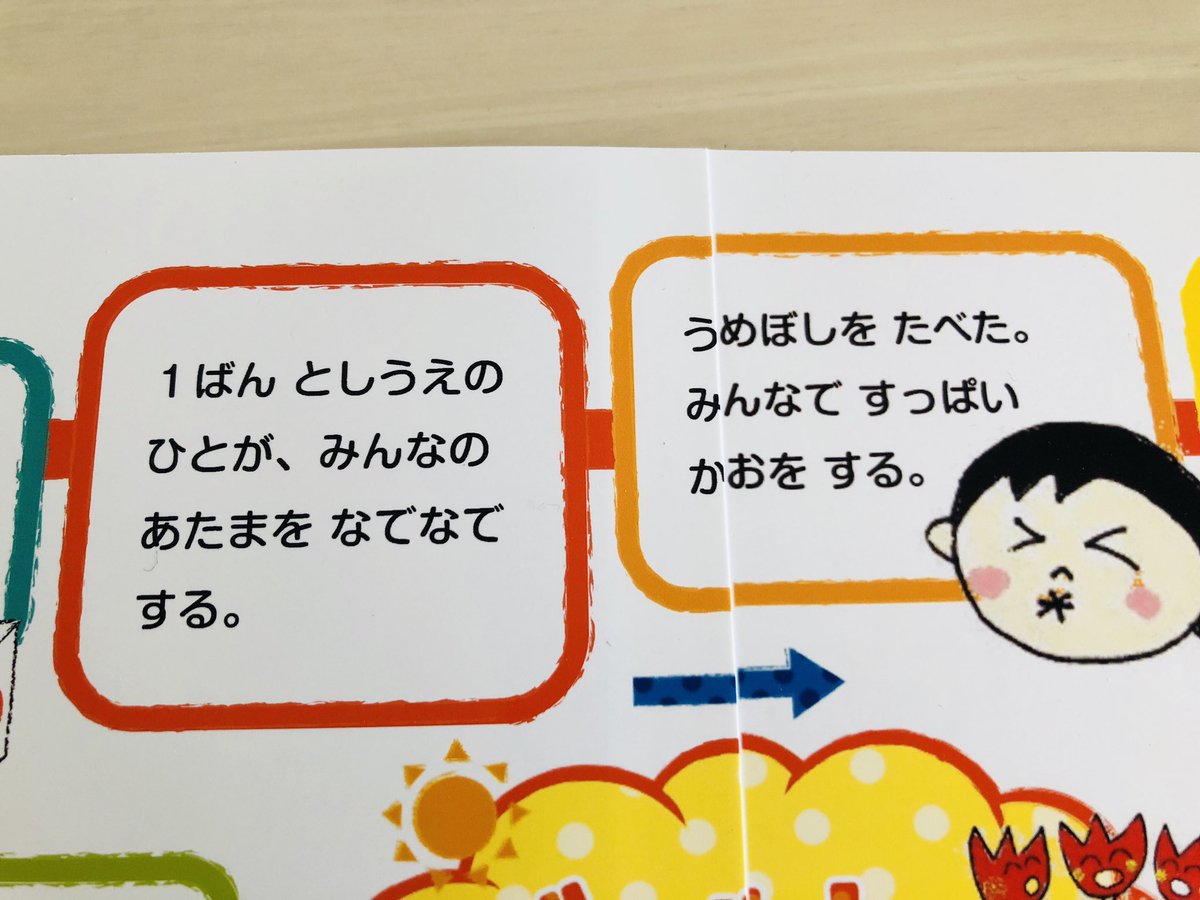 1ばん としうえの
ひとが、みんなの
あたまを なでなで
する。
うめぼしを たべた。
みんなで すっぱい
かおを する。